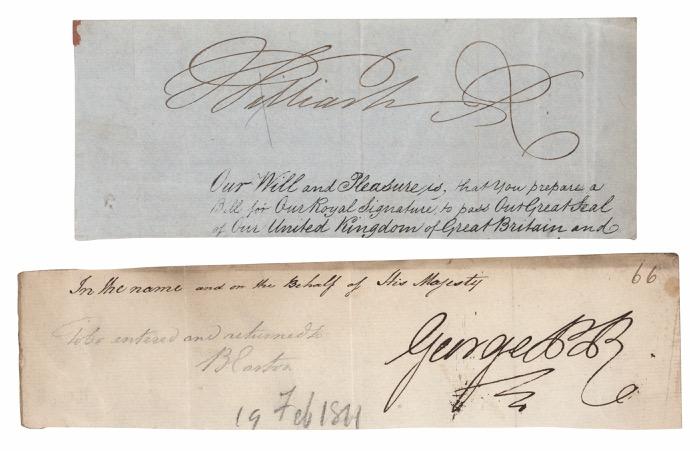 William R
Our Will and Pleasure is, that You prepare a
Bill for Our Royal Signature, to pass Our Great Seal
of Our United Kingdom of Great Britain and
66
In the name and on the Behalf of His Majesty
To be entered and returned to
George P. R.
19 Feb 1811